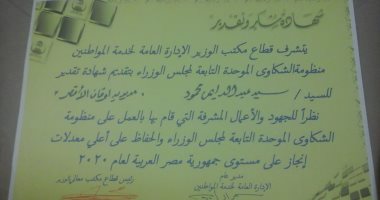 شهادة شكر وتقدير
يتشرف قطاع مكتب الوزير الإدارة العامة لخدمة المواطنين
منظومة الشكاوى الموحدة التابعة لمجلس الوزراء بتقديم شهادة تقدير
للسيد / سيد عبد الدايم محمود مدير مديرية أوقاف الأقصر
نظراً للجهود والأعمال المشرفة التي قام بها بالعمل على منظومة
الشكاوى الموحدة التابعة لمجلس الوزراء والحفاظ على أعلي معدلات
إنجاز على مستوى جمهورية مصر العربية لعام ٢٠٢٠
مدير عام
الإدارة العامة لخدمة المواطنين
رئيس قطاع مكتب معالي الوزير